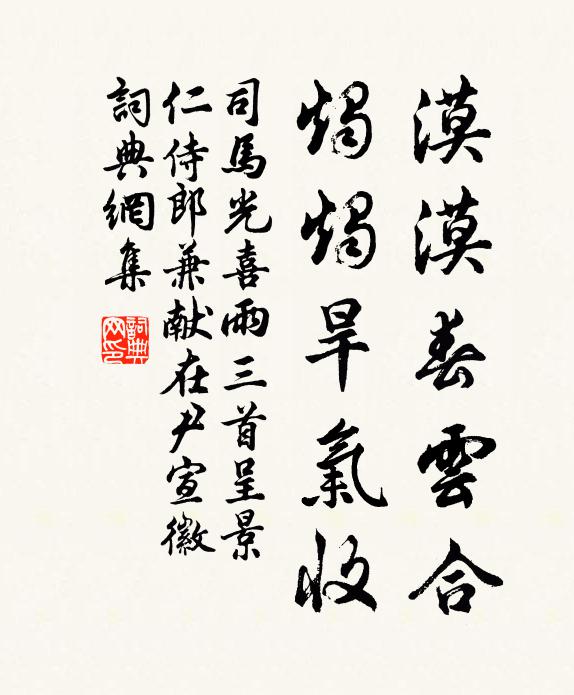 漠漠春雲合
燭燭旱氣收
司馬光喜雨三首呈景
仁侍郎兼献在尹宣徽
詞典網集
詞典
网印